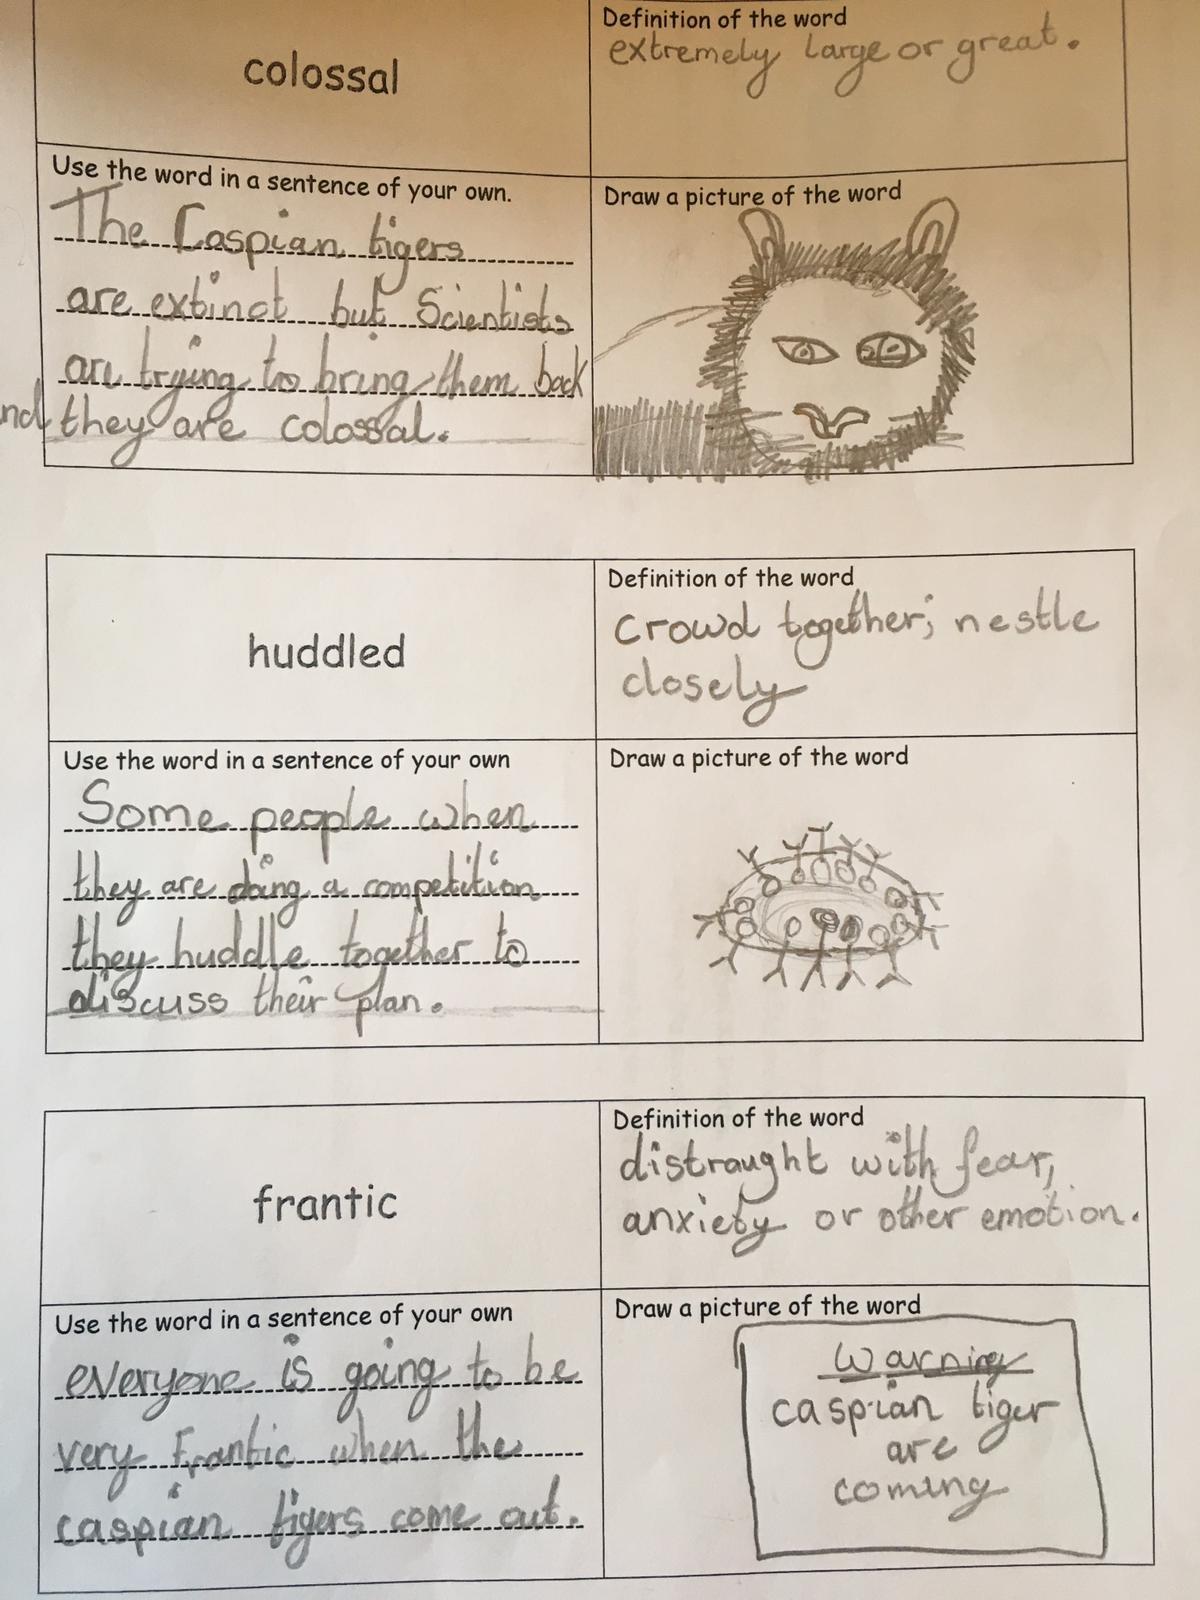 colossal
Definition of the word
extremely large or great.
Use the word in a sentence of your own.
The Caspian tigers
are extinct but Scientists
are trying to bring them back
and they are colossal.
Draw a picture of the word
huddled
Definition of the word
crowd together; nestle
closely
Use the word in a sentence of your own
Some people when
they are doing a competition
they huddle together to
discuss their plan.
Draw a picture of the word
frantic
Definition of the word
distraught with fear,
anxiety or other emotion.
Use the word in a sentence of your own
everyone is going to be
very Frantic when the
caspian tigers come out.
Draw a picture of the word
Warning
caspian tiger
are
coming